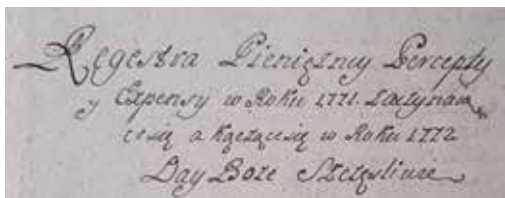 Regestra Pieniężny Percepty
y Expensy w Roku 1771. Zaczynaią
cesię a Kączącesię w Roku 1772
Day Boze Szczęsliwie